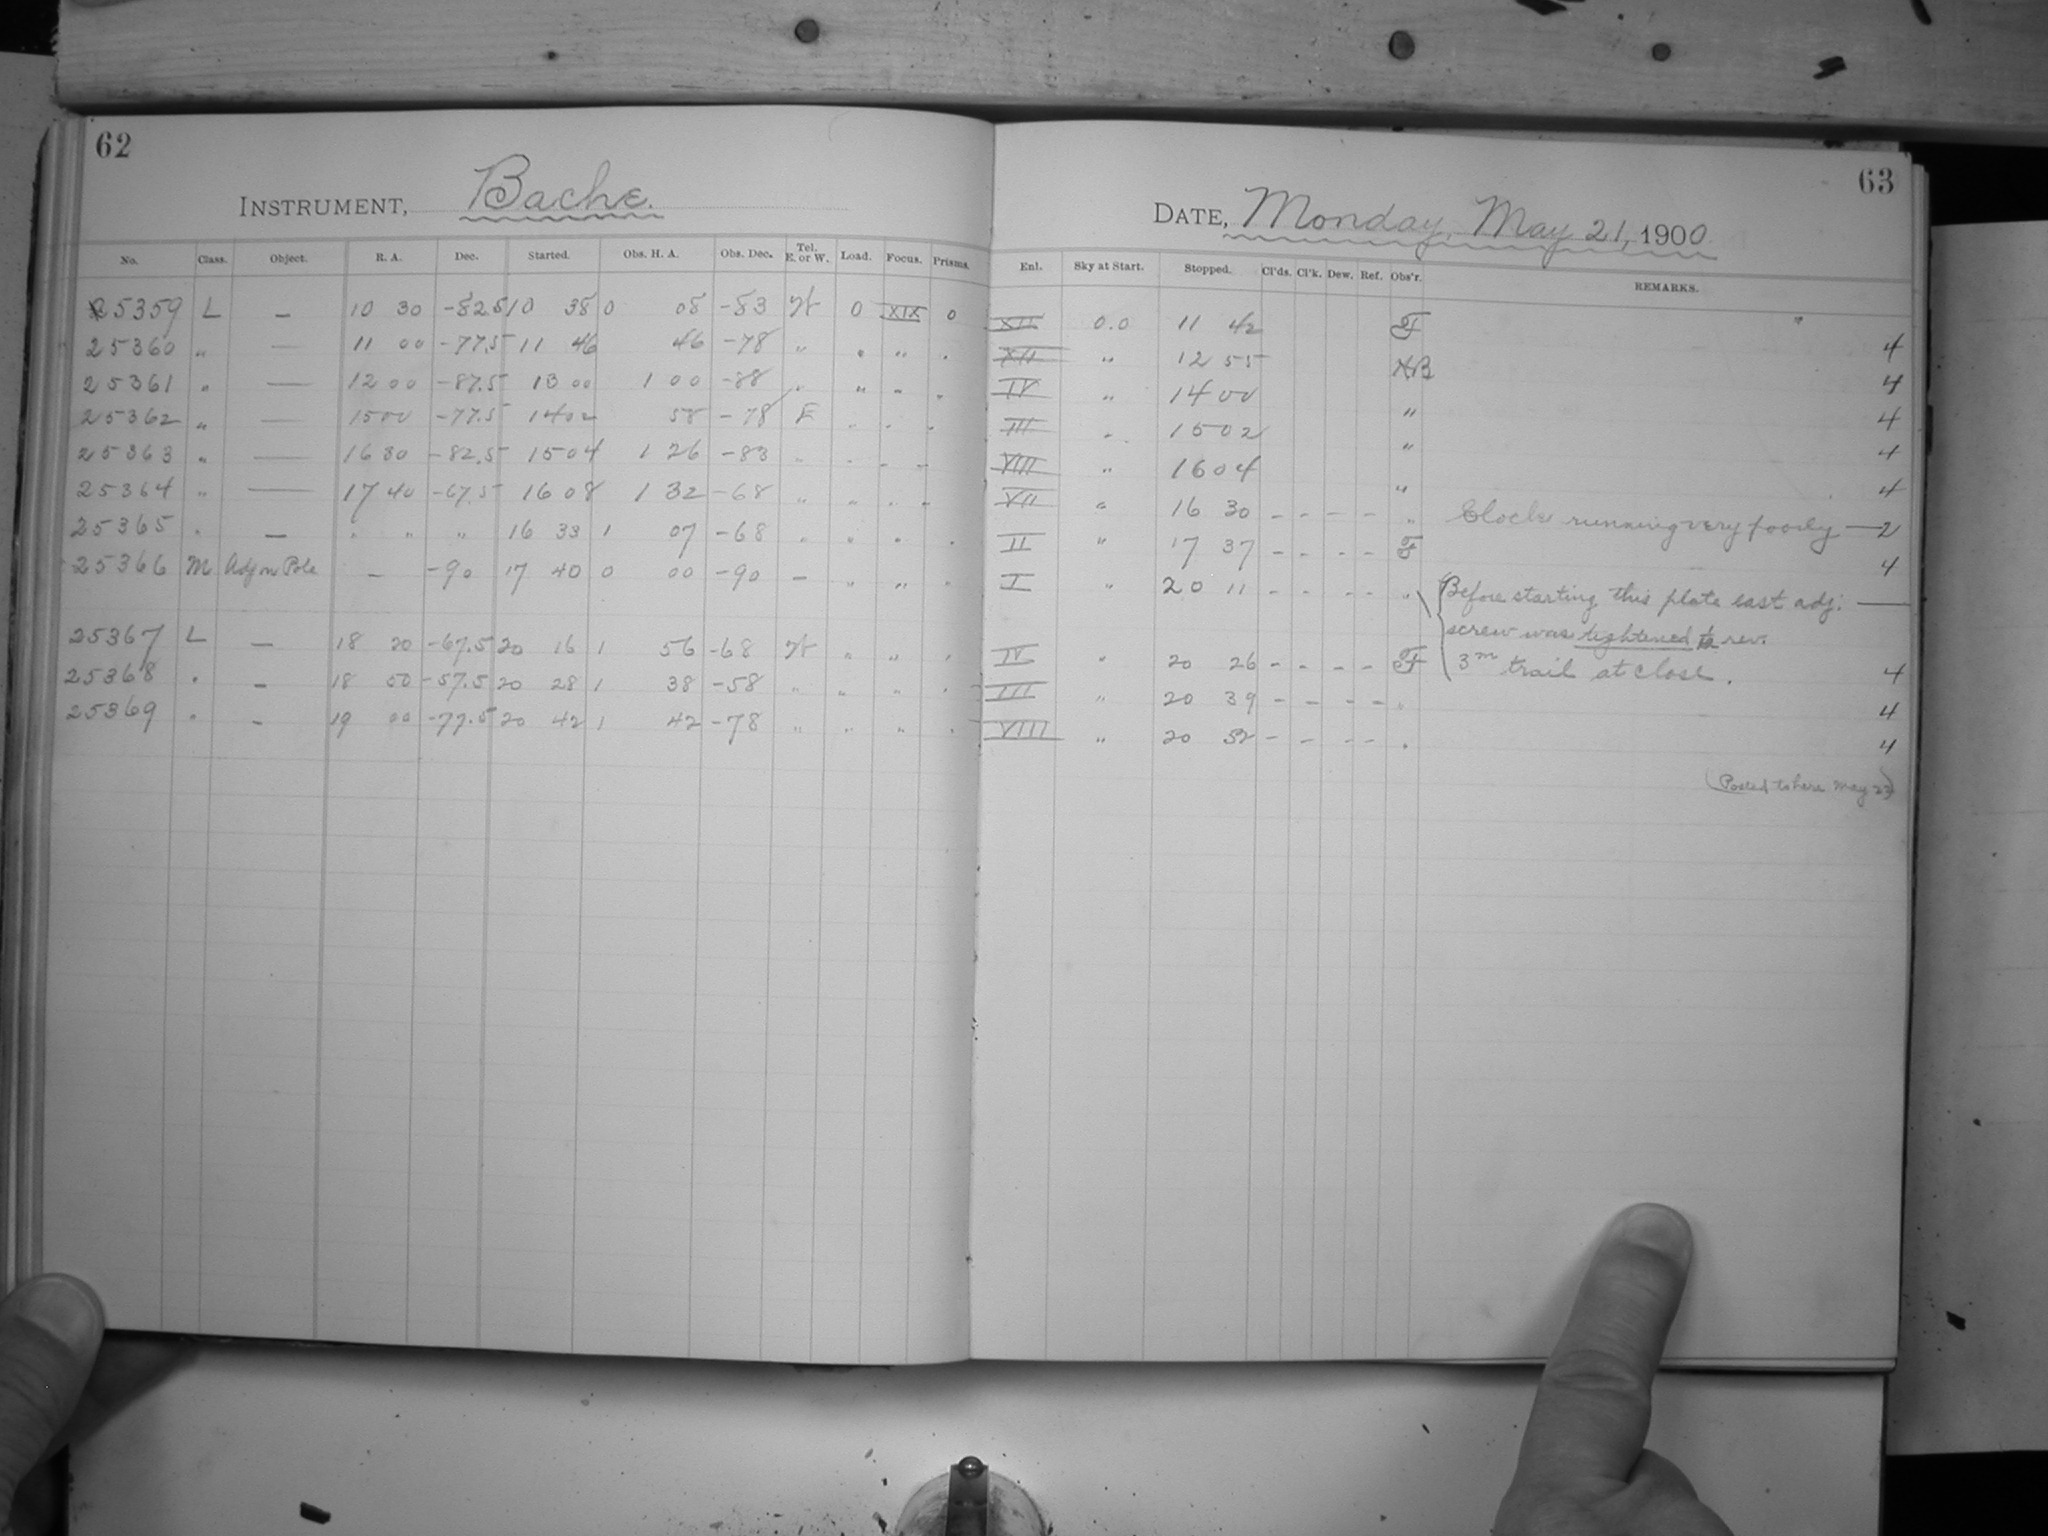 62
INSTRUMENT, Bache.
No. Class. Object. R. A. Dec. Started. Obs. H. A. Obs. Dec. Tel. E. or W. Load. Focus. Prisms.
25359 L — 10 30 -82.5 10 38 0 08 -83 W 0 XIX 0
25360 " — 11 00 -77.5 11 46 46 -78 " " " "
25361 " — 12 00 -87.5 13 00 1 00 -88 " " " "
25362 " — 15 00 -77.5 14 02 58 -78 E " " "
25363 " — 16 30 -82.5 15 04 1 26 -83 " " " "
25364 " — 17 40 -67.5 16 08 1 32 -68 " " " "
25365 " — " " " 16 33 1 07 -68 " " " "
25366 M Adj on Pole — -90 17 40 0 00 -90 — " " "
25367 L — 18 20 -67.5 20 16 1 56 -68 W " " "
25368 " — 18 50 -57.5 20 28 1 38 -58 " " " "
25369 " — 19 00 -77.5 20 42 1 42 -78 " " " "
63
DATE, Monday, May 21, 1900
Enl. Sky at Start. Stopped. Cl'ds. Cl'k. Dew. Ref. Obs'r. REMARKS.
XII 0.0 11 42 F 4
XII " 12 55 XB 4
IV " 14 00 " 4
III " 15 02 " 4
VIII " 16 04 " 4
VII " 16 30 - - - - " Clock running very poorly — 2
II " 17 37 - - - - F 4
I " 20 11 - - - - " Before starting this plate east adj. —
screw was tightened rev.
IV " 20 26 - - - - F 3m trail at close. 4
III " 20 39 - - - - " 4
VIII " 20 52 - - - - " 4
(Posted to here May 23)